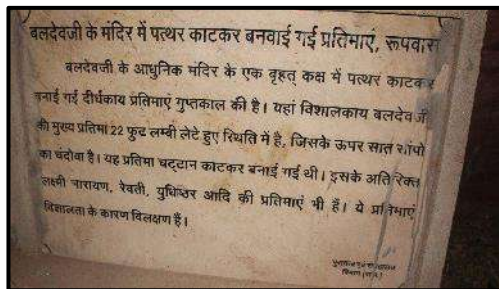 बलदेवजी के मंदिर में पत्थर काटकर बनवाई गई प्रतिमाएं, रूपवास
बलदेवजी के आधुनिक मंदिर के एक वृहत् कक्ष में पत्थर काटकर
बनाई गई दीर्घकाय प्रतिमाएं गुप्तकाल की है। यहां विशालकाय बलदेव जी
की मुख्य प्रतिमा 22 फुट लम्बी लेटे हुए स्थिति में है, जिसके ऊपर सात सांपो
का चंदोवा है। यह प्रतिमा चट्टान काटकर बनाई गई थी। इसके अतिरिक्त
लक्ष्मी नारायण, रेवती, युधिष्ठर आदि की प्रतिमाएं भी है। ये प्रतिमाएं
विशालता के कारण विलक्षण हैं।